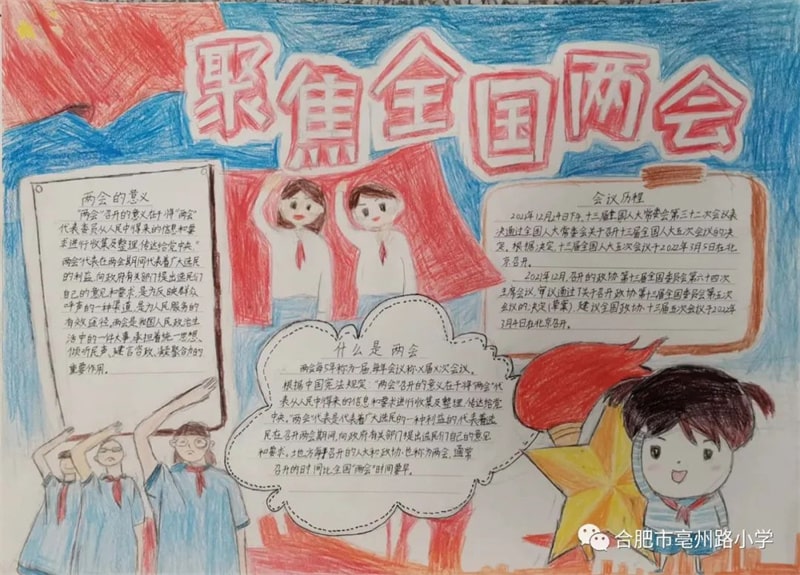 聚焦全国两会
两会的意义
"两会"召开的意义在于将"两会"
代表委员从人民中得来的信息和要
求进行收集及整理,传达给党中央。
"两会"代表在两会期间代表着广大选民
的利益,向政府有关部门提出选民们
自己的意见和要求,是为反映群众
呼声的一种渠道,是为人民服务的
有效途径,两会是我国人民政治生
活中的一件大事,承担着统一思想、
倾听民声、建言咨政、凝聚合力的
重要作用。
会议历程
2021年12月24日下午,十三届全国人大常委会第三十二次会议表
决通过全国人大常委会关于召开十三届全国人大五次会议的决
定。根据决定,十三届全国人大五次会议于2022年3月5日在北
京召开。
2021年12月,召开的政协第十三届全国委员会第六十四次
主席会议,审议通过了关于召开政协第十三届全国委员会第五次
会议的决定(草案),建议全国政协十三届五次会议于2022年
3月4日在北京召开。
什么是两会
两会每5年称为一届,每年会议称X届X次会议。
根据中国宪法规定:"两会"召开的意义在于将"两会"代
表从人民中得来的信息和要求进行收集及整理,传达给党
中央。"两会"代表是代表着广大选民的一种利益的,代表着选
民在召开两会期间,向政府有关部门提出选民们自己的意见
和要求。地方每年召开的人大和政协也称为两会,通常
召开的时间比全国"两会"时间要早。
合肥市亳州路小学